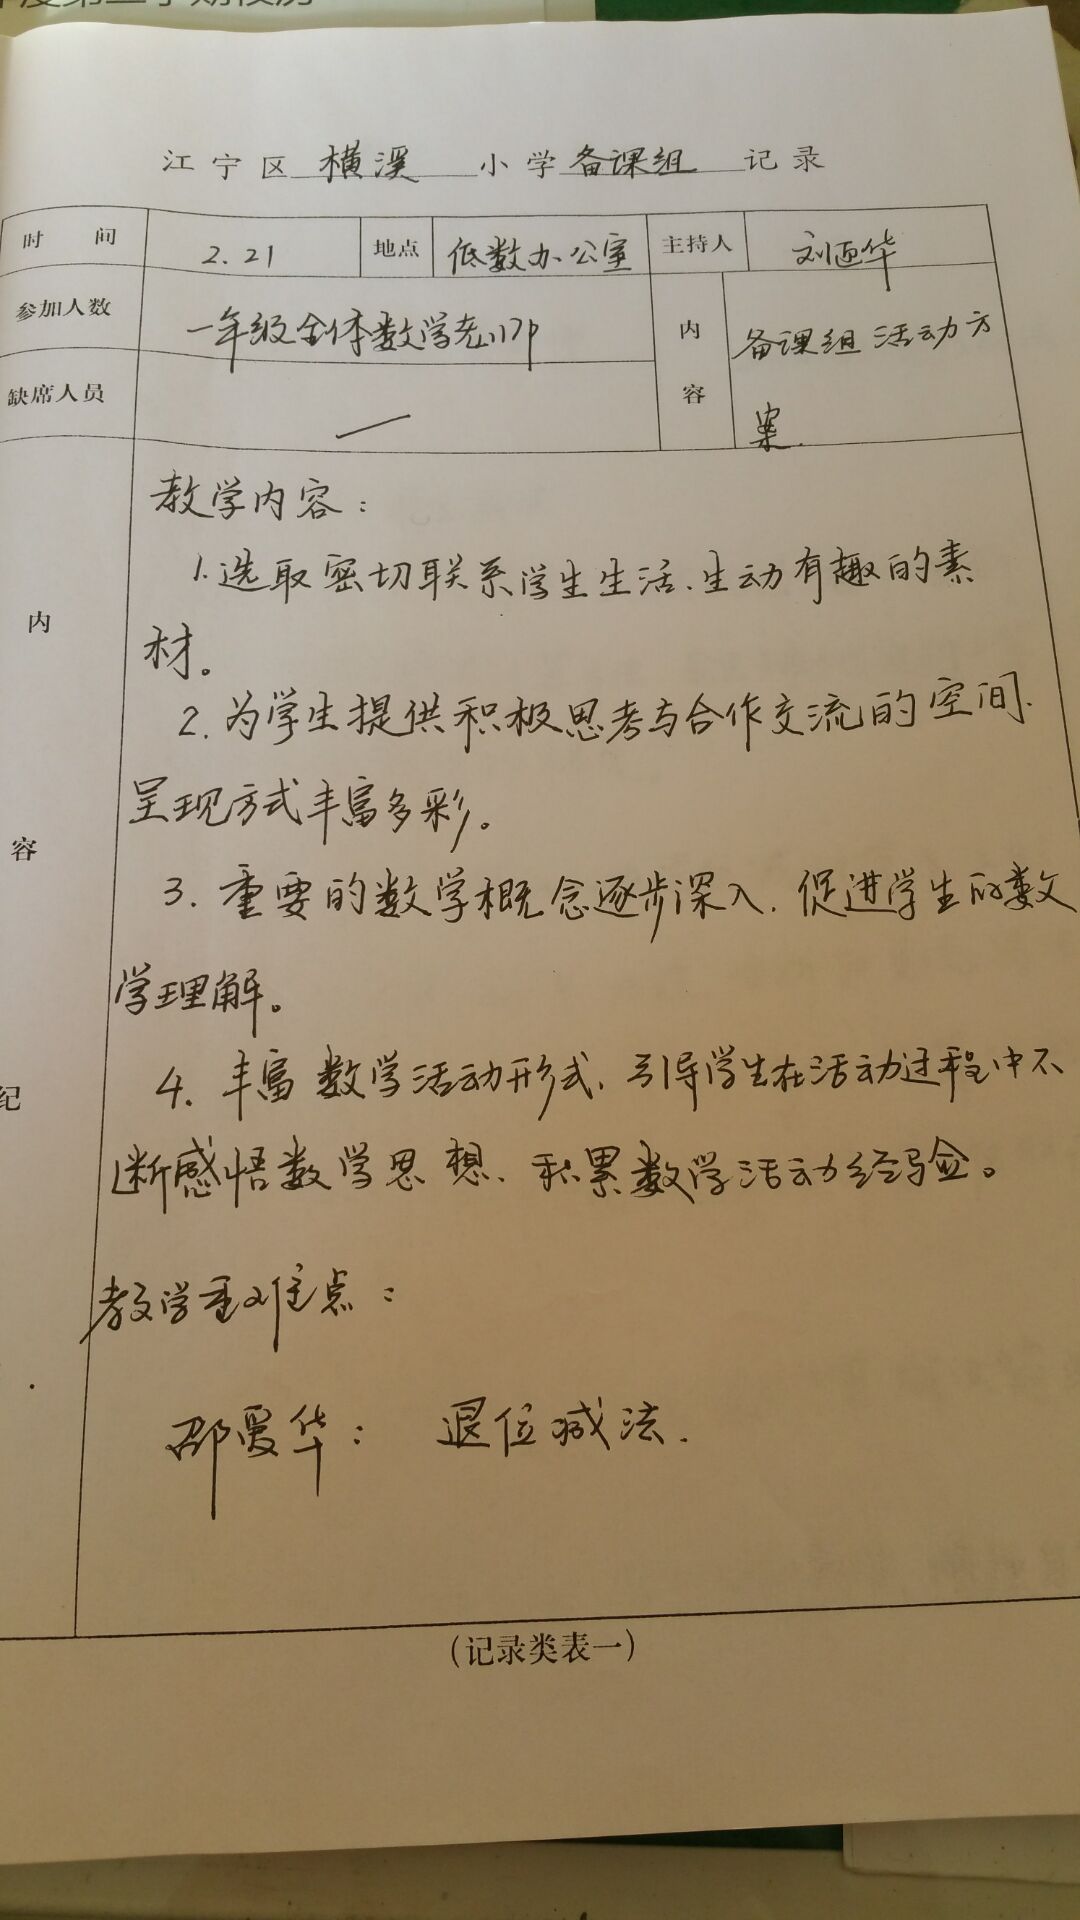 江宁区 横溪 小学 备课组 记录
时 间 2.21 地点 低数办公室 主持人 刘迎华
参加人数 一年级全体数学老师 内容 备课组活动方案.
缺席人员 /
内容纪
教学内容:
1.选取密切联系学生生活、生动有趣的素
材。
2.为学生提供积极思考与合作交流的空间.
呈现方式丰富多彩。
3. 重要的数学概念逐步深入,促进学生的数
学理解。
4. 丰富数学活动形式,引导学生在活动过程中不
断感悟数学思想、积累数学活动经验。
教学重难点:
邵爱华: 退位减法.
(记录类表一)